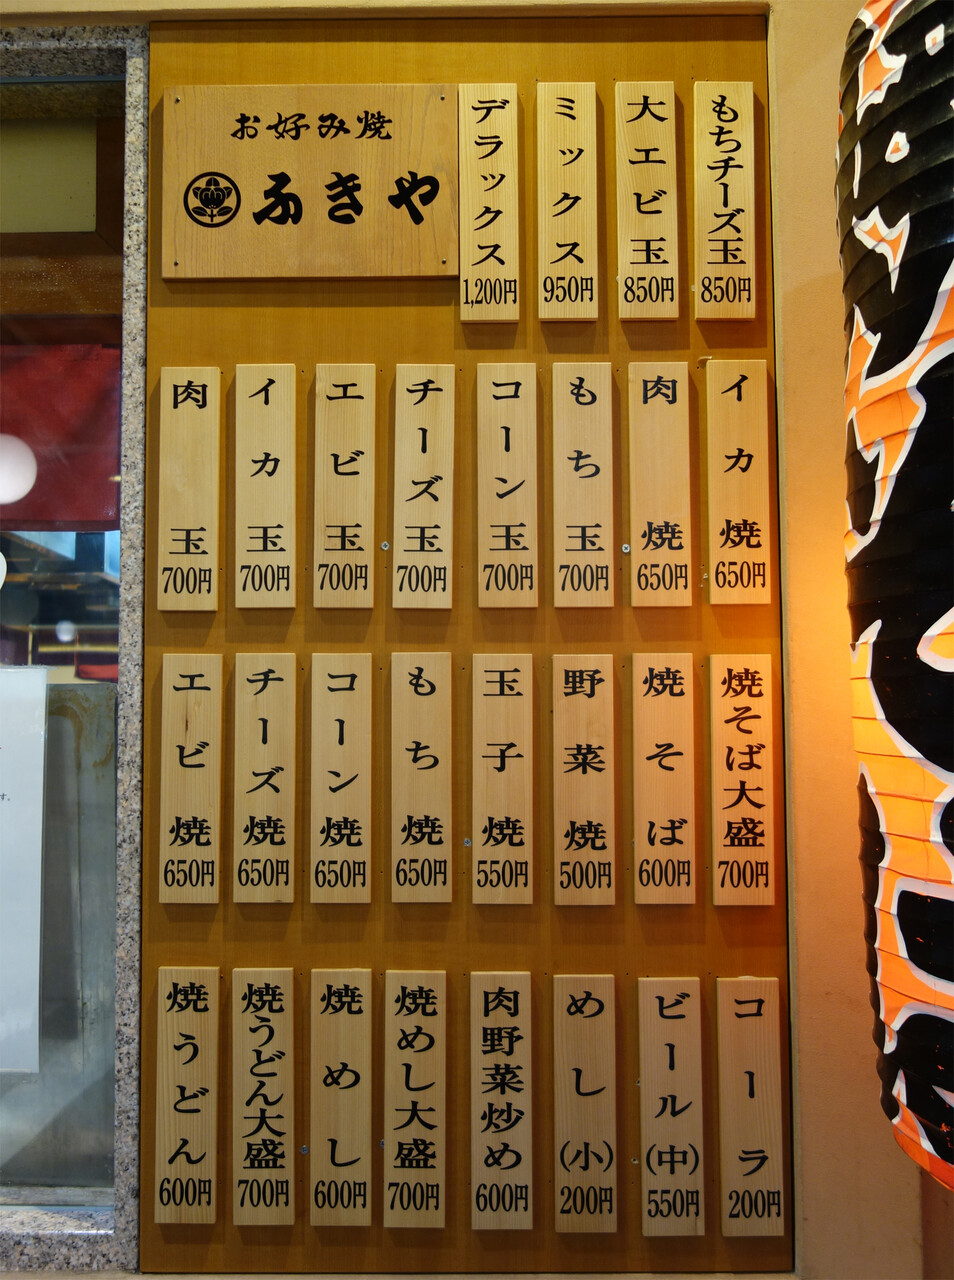 お好み焼
ふきや
デラックス
1,200円
ミックス
950円
大エビ玉
850円
もちチーズ玉
850円
肉玉
700円
イカ玉
700円
エビ玉
700円
チーズ玉
700円
コーン玉
700円
もち玉
700円
肉焼
650円
イカ焼
650円
エビ焼
650円
チーズ焼
650円
コーン焼
650円
もち焼
650円
玉子焼
550円
野菜焼
500円
焼そば
600円
焼そば大盛
700円
焼うどん
600円
焼うどん大盛
700円
焼めし
600円
焼めし大盛
700円
肉野菜炒め
600円
めし(小)
200円
ビール(中)
550円
コーラ
200円